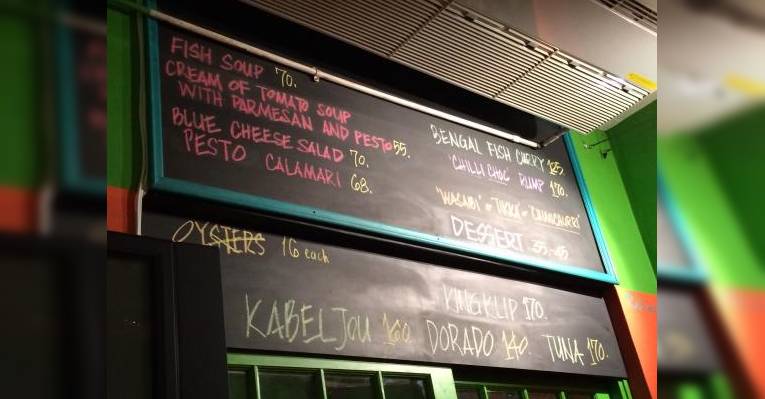 FISH SOUP 70.
CREAM OF TOMATO SOUP
WITH PARMESAN AND PESTO 55.
BLUE CHEESE SALAD 70.
PESTO CALAMARI 68.
BENGAL FISH CURRY 125
'CHILLI CHOC' RUMP 170.
"WASABI"
DESSERT 35-45
OYSTERS 16 each
KINGKLIP 170.
KABELJOU 160 DORADO 140. TUNA 170.